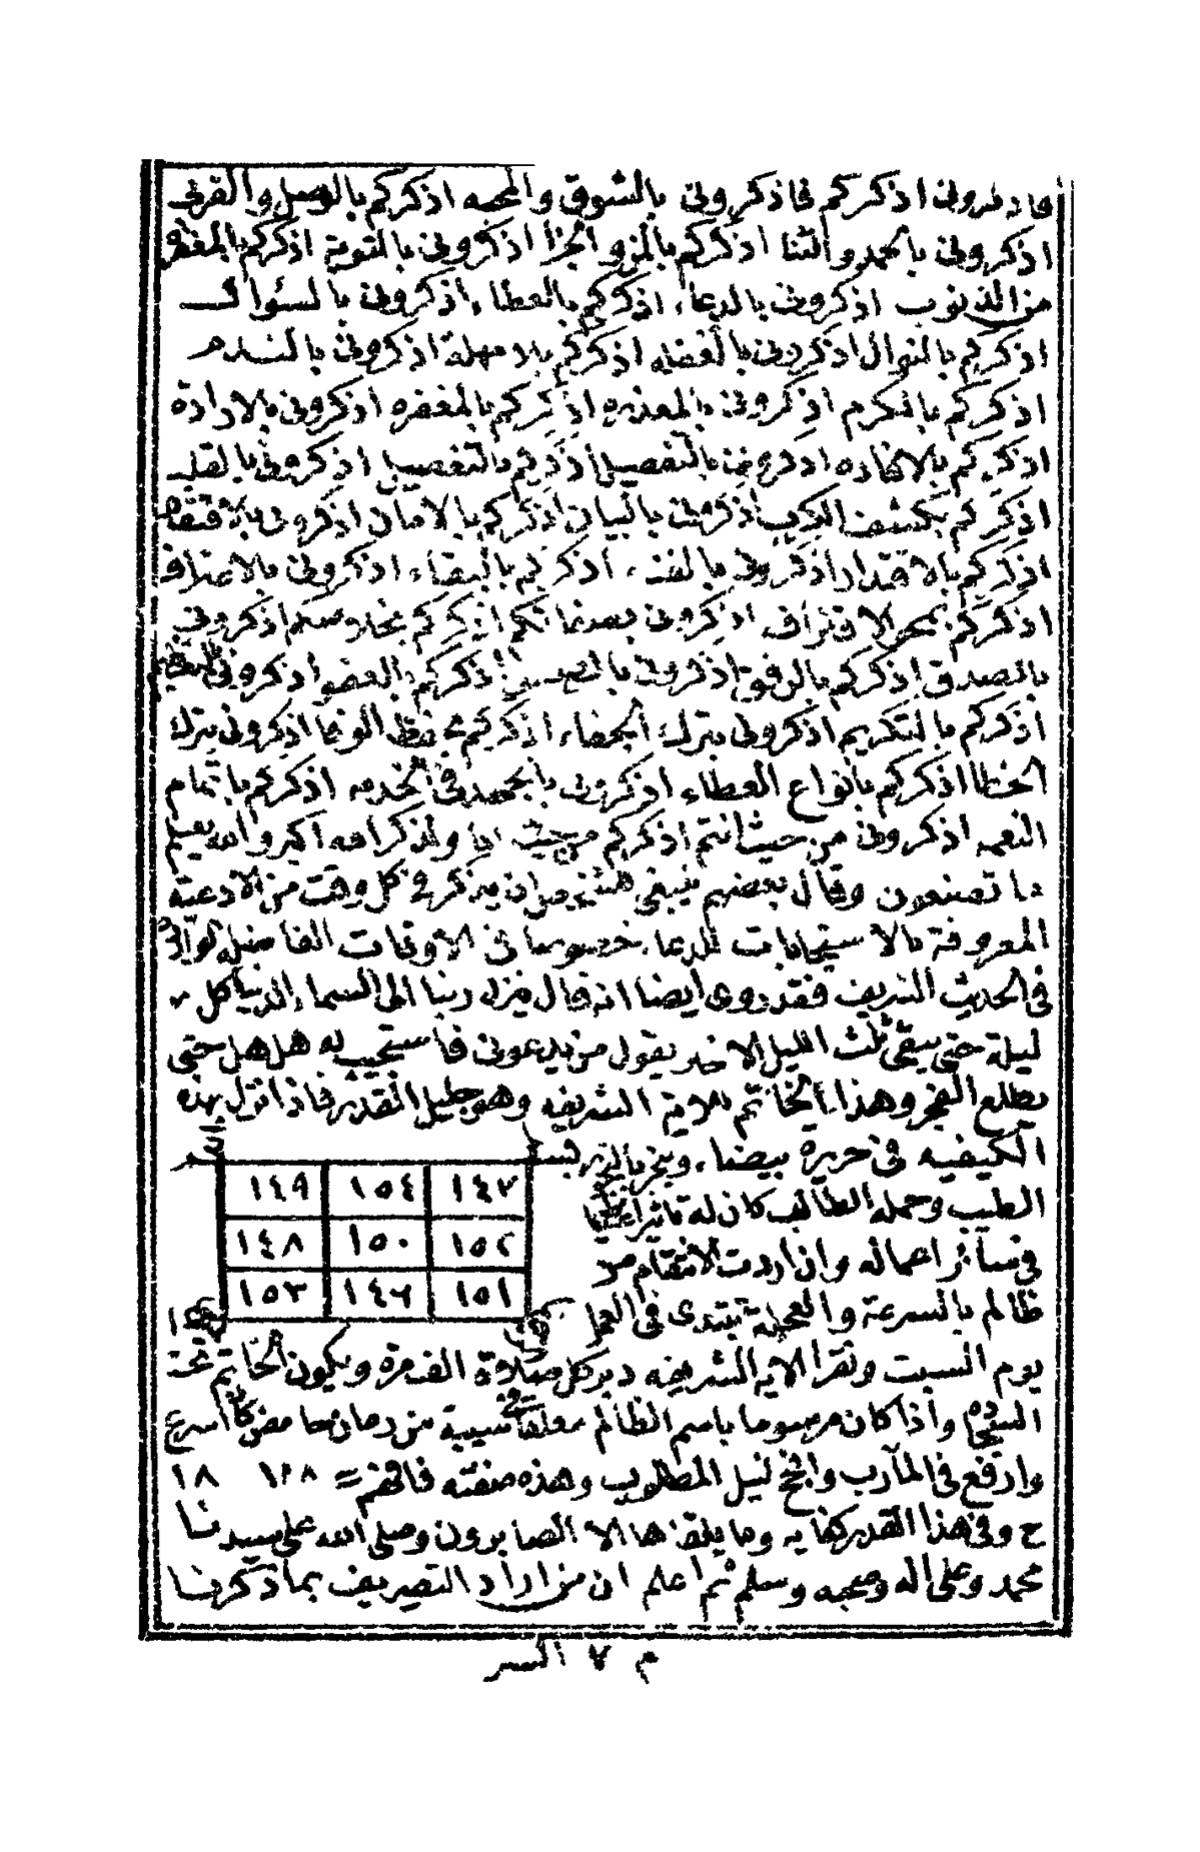 اذكركم فاذكروني بالشوق والمحبه اذكركم بالوصل والقربى
اذكروني بالحمد والثنا اذكركم بالمن والجزا اذكروني بالتوبة اذكركم بالمغفره
من الذنوب اذكروني بالدعاء اذكركم بالعطاء اذكروني بالسئوال
اذكركم بالنوال اذكروني اذكركم بلا مهلة اذكروني بالندم
اذكركم بالكرم اذكروني بالمعذره اذكركم بالمغفره اذكروني بالارادة
اذكركم بالافاده اذكروني اذكركم بالتفضيل اذكروني بالقلب
اذكركم بكشف الكرب اذكروني بالبيان اذكركم بالامان اذكروني بالافتقار
اذكركم بالاقتدار اذكروني اذكركم بالبقاء اذكروني بالاعتراف
اذكركم بمحو الاقتراف اذكروني اذكركم اذكروني
بالصدق اذكركم بالرفق اذكروني اذكركم بالعفو اذكروني بالتعظيم
اذكركم بالتكريم اذكروني بترك الجفاء اذكركم بحفظ الوفا اذكروني بترك
الخطا اذكركم بانواع العطاء اذكروني بالجهد في الخدمه اذكركم باتمام
النعمه اذكروني من حيث انتم اذكركم من حيث انا ولذكر الله اكبر والله يعلم
ما تصنعون وقال بعضهم ينبغي ان يذكر في كل وقت من الادعية
المعروفة بالاستجابات للدعاء خصوصا في الاوقات الفاضله
في الحديث الشريف فقد روى ايضا انه قال ينزل ربنا الى السماء الدنيا كل
ليلة حتى يبقى ثلث الليل الاخير يقول من يدعوني فاستجيب له هل هل حتى
يطلع الفجر وهذا الخاتم للاية الشريفه وهو جليل القدر فاذا نزل بهذه
الكيفيه في حريرة بيضاء وبخر بالبخور
١٤٧ ١٥٤ ١٤٩
الطيب وحمله الطالب كان له تاثيرا عظيما
١٥٢ ١٥٠ ١٤٨
في سائر اعماله وان اردت الانتقام من
١٥١ ١٤٦ ١٥٣
ظالم بالسرعة والعجلة تبتدى في العمل
يوم السبت وتقرا الاية الشريفه دبر كل صلاة الف مرة ويكون الخاتم تحت
السجاده واذا كان مرسوما باسم الظالم معلقا في سيبة من رمان حامض كان اسرع
وارفع في المآرب وانجح لنيل المطلوب وهذه صفته فافهم = ١٢٨ ١٨
ح وفي هذا القدر كفايه وما يلقاها الا الصابرون وصلى الله على سيدنا
محمد وعلى اله وصحبه وسلم ثم اعلم ان من اراد التصريف بما ذكرنا
م ٧ السر